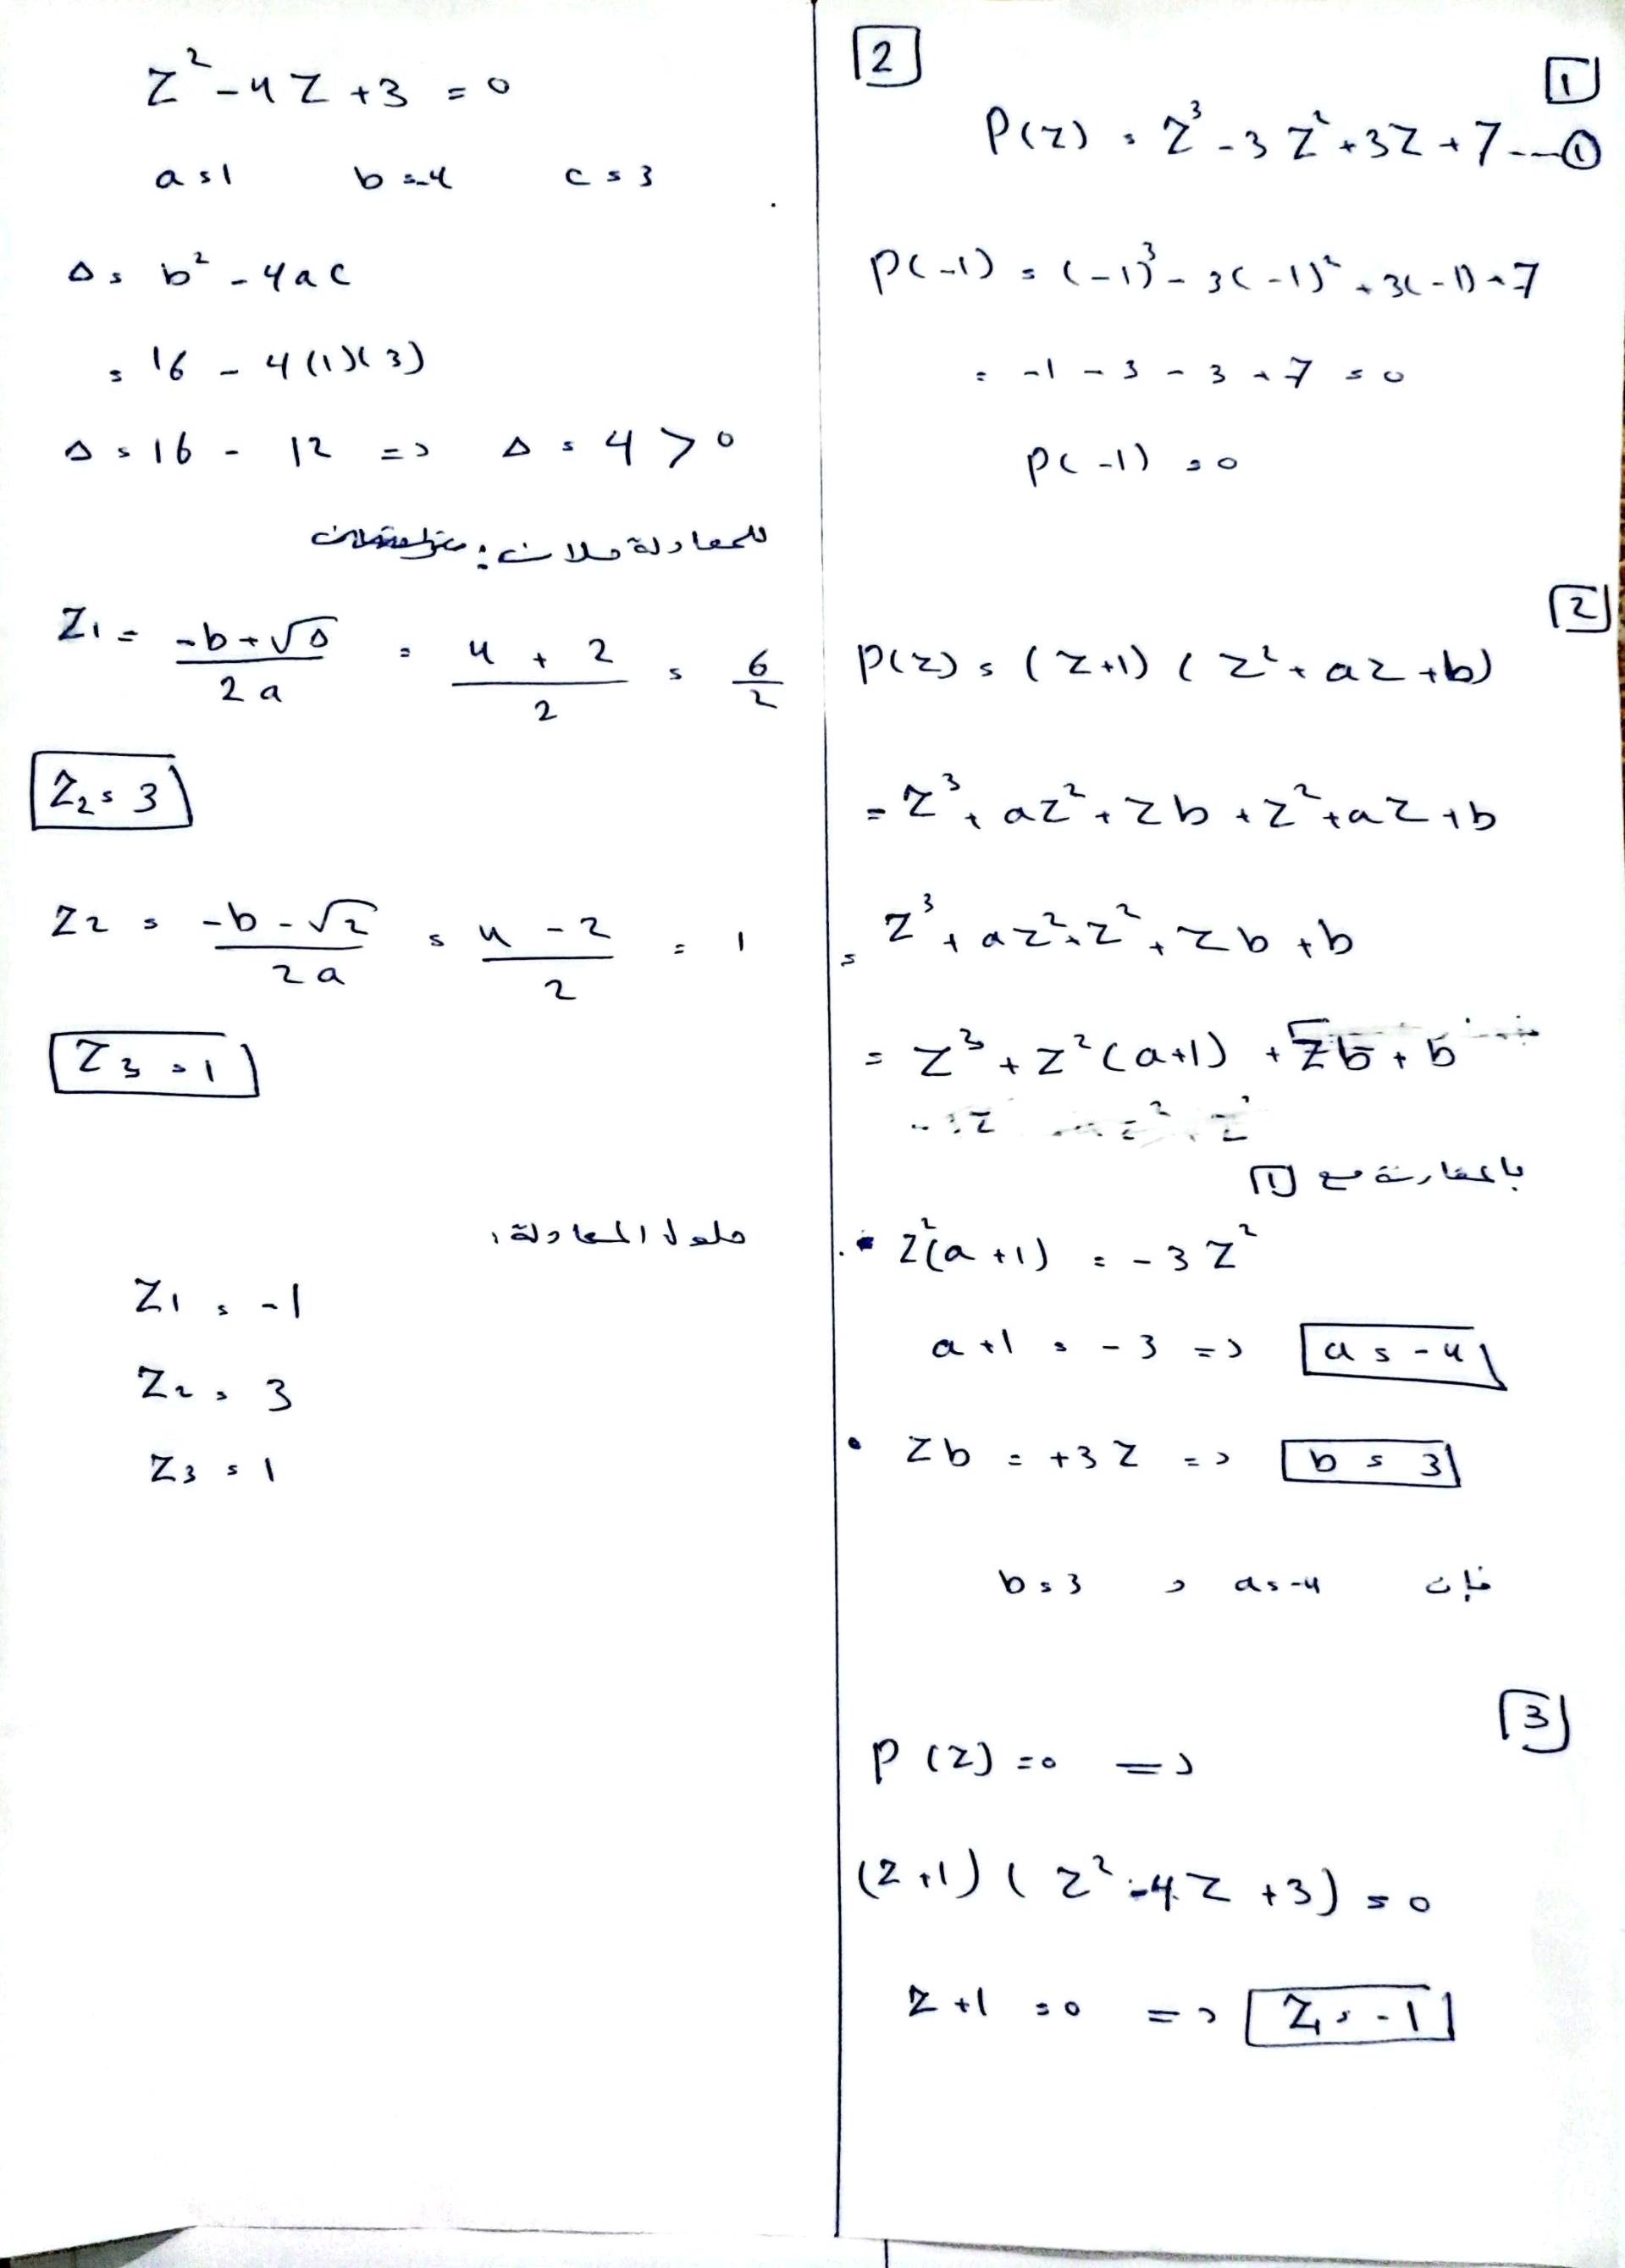 [2]
[1]
P(z) = z³ - 3z² + 3z + 7 ---- ①
P(-1) = (-1)³ - 3(-1)² + 3(-1) + 7
= -1 - 3 - 3 + 7 = 0
P(-1) = 0
[2]
P(z) = (z+1) (z² + az + b)
= z³ + az² + zb + z² + az + b
= z³ + az² + z² + zb + b
= z³ + z²(a+1) + zb + b
بالمقارنة مع [1]
• z²(a+1) = -3z²
a+1 = -3 => a = -4
• zb = +3z => b = 3
فإن a = -4 و b = 3
[3]
P(z) = 0 =>
(z+1) (z² - 4z + 3) = 0
z+1 = 0 => z₁ = -1
z² - 4z + 3 = 0
a = 1 b = -4 c = 3
Δ = b² - 4ac
= 16 - 4(1)(3)
Δ = 16 - 12 => Δ = 4 > 0
للمعادلة حلان :
z₁ = (-b+√Δ)/2a = (4+2)/2 = 6/2
z₂ = 3
z₂ = (-b-√2)/2a = (4-2)/2 = 1
z₃ = 1
حلول المعادلة:
z₁ = -1
z₂ = 3
z₃ = 1